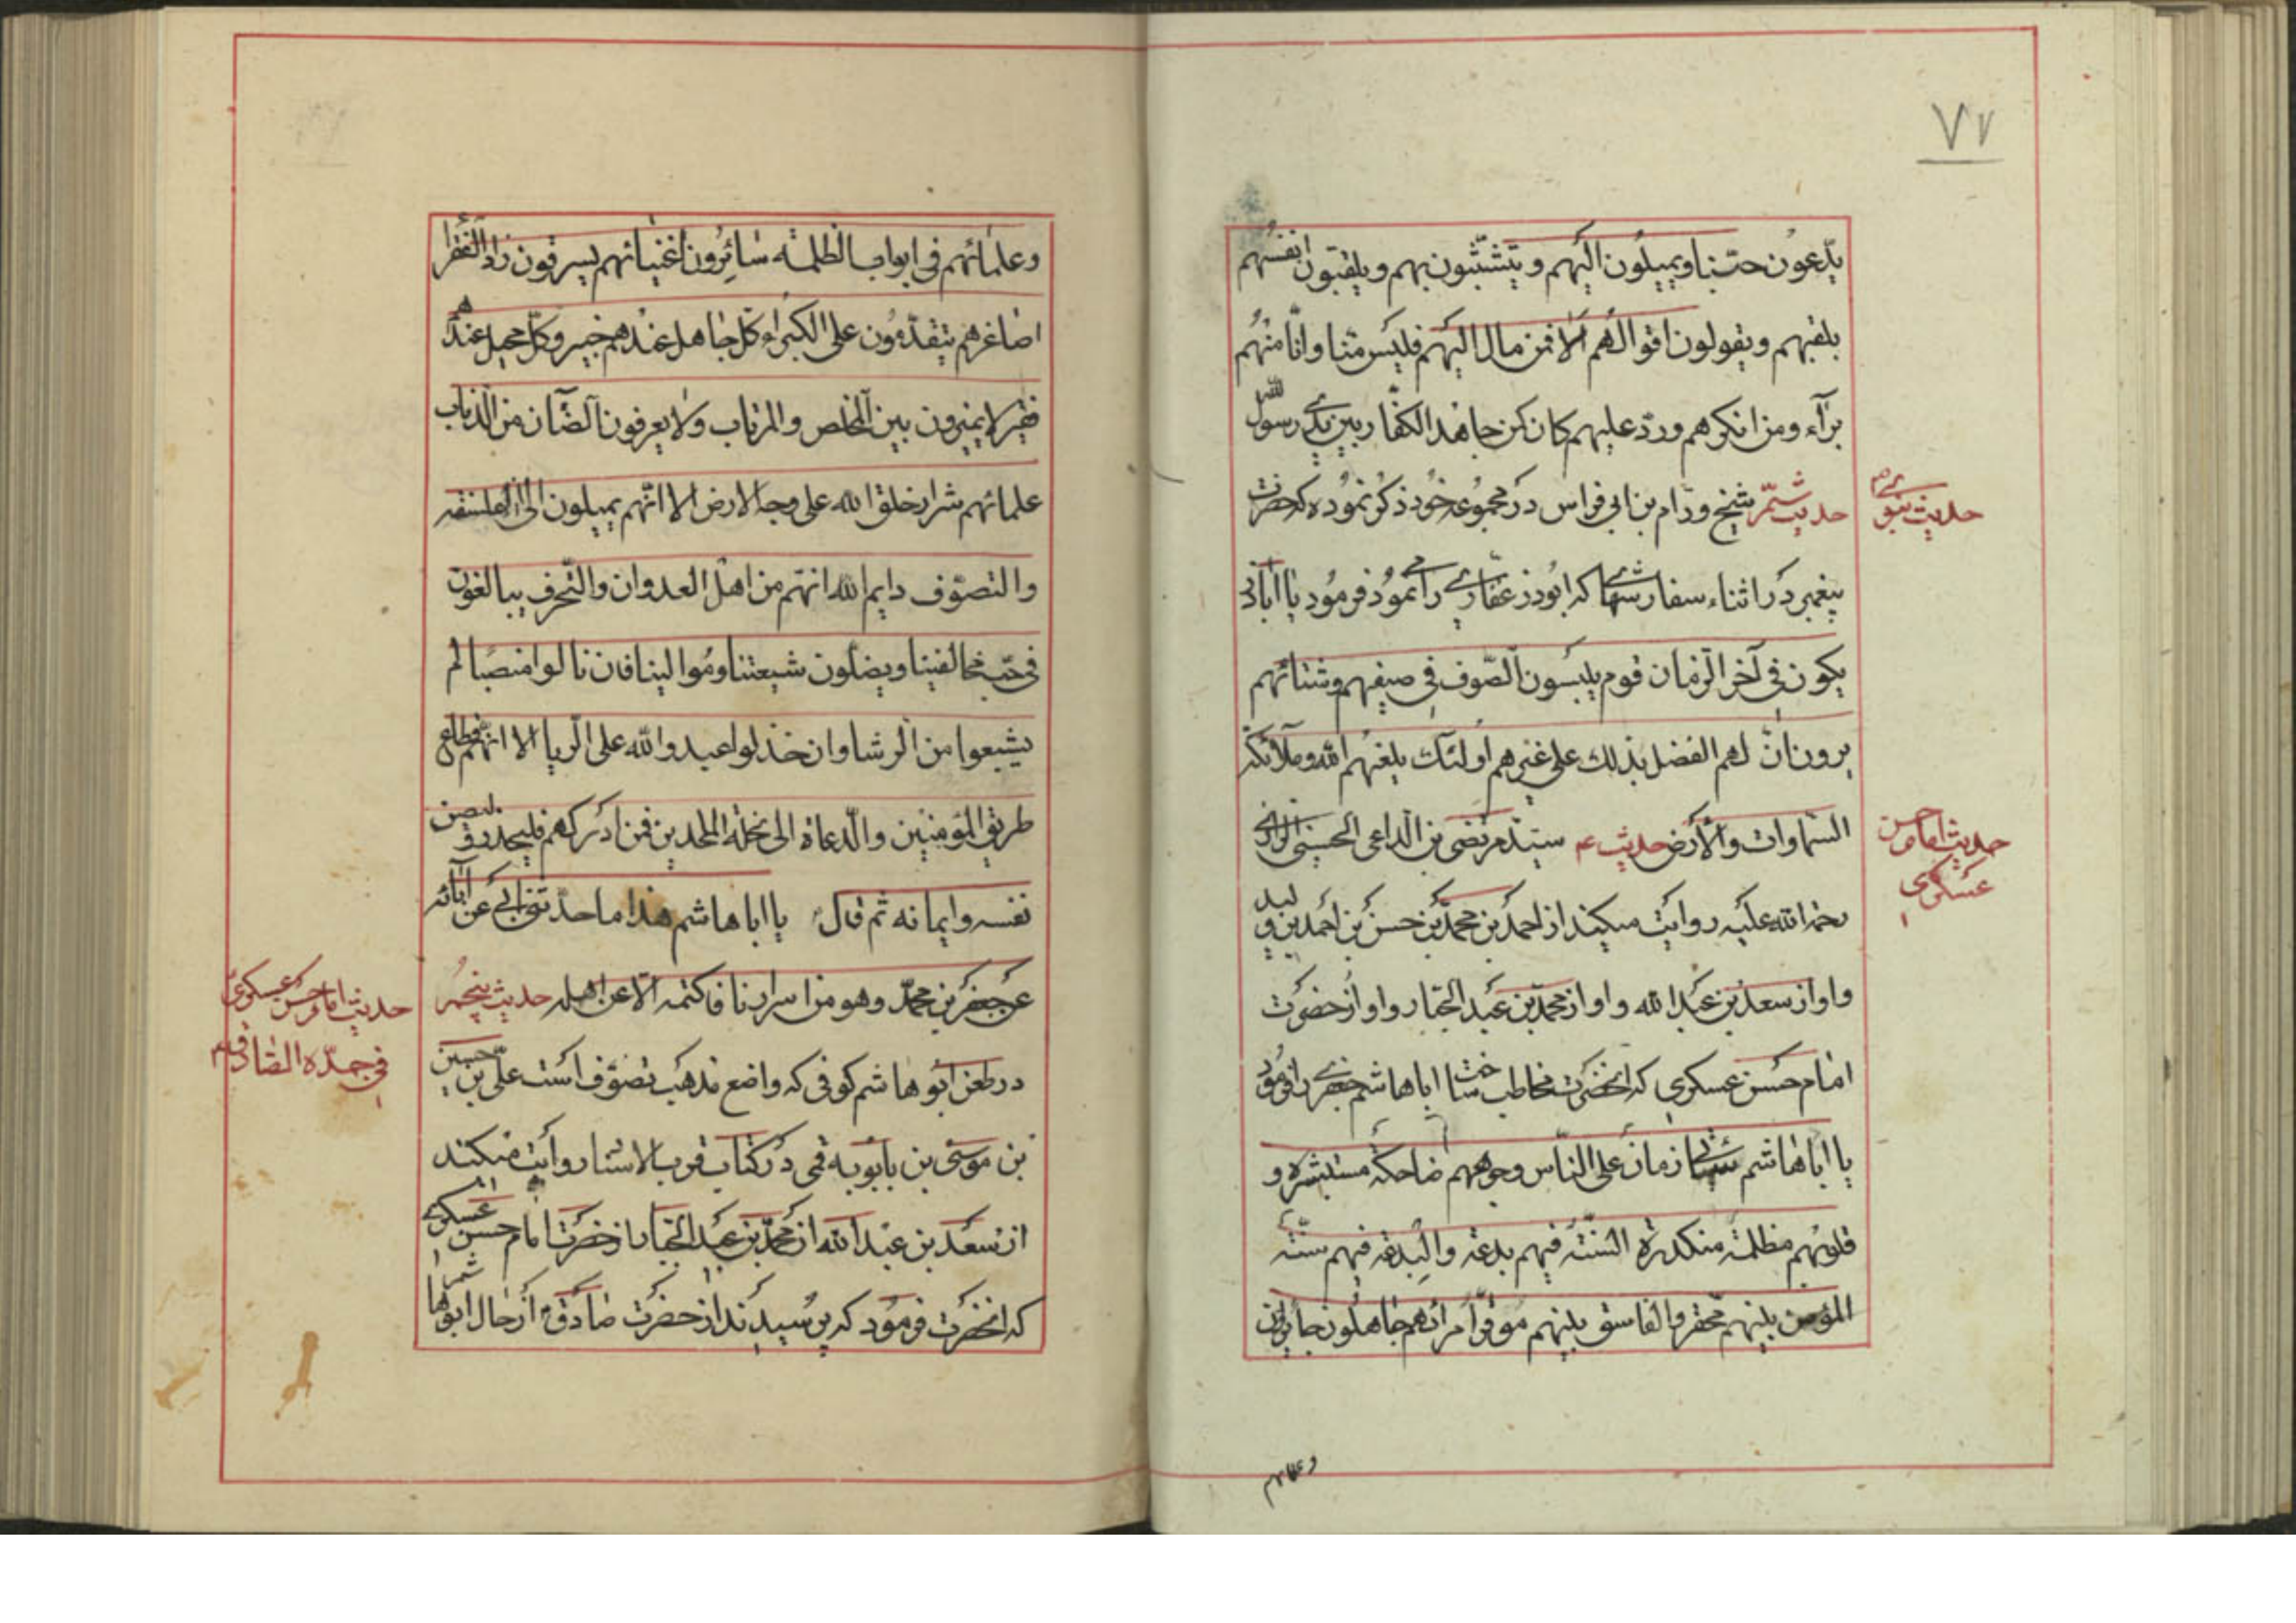 ٧٧
يدّعون حبّنا ويميلون اليهم و يتشبّثون بهم ويلقبون انفسهم
بلقبهم ويقولون اقوالهم الا فمن مال اليهم فليس منا وانّا منهم
برآء ومن انكرهم وردّ عليهم كان كمن جاهد الكفّار بين يدي رسول الله
حديث شيخ ورّام بن ابي فراس در مجموعه خود ذكر نموده كه حضرت
حديث نبوي ص
پيغمبر در اثناء سفارشهائي كه ابوذر غفّاري را مي نمود فرمود يا اباذر
يكون في آخر الزمان قوم يلبسون الصّوف في صيفهم وشتائهم
يرون انّ لهم الفضل بذلك على غيرهم اولئك يلعنهم الله وملآئكة
السّماوات والأرض حديث ۴ سيّد مرتضى بن الداعي الحسيني الرازي
حديث امام حسن
عسكري
رحمة الله عليه روايت ميكيند از احمد بن محمّد بن حسن بن احمد بن وليد
و او از سعد بن عبد الله و او از محمّد بن عبد الجبّار و او از حضرت
امام حسن عسكري كه آنحضرت مخاطب ساخت اباهاشم جعفري را فرمود
يا اباهاشم سيأتي زمان على النّاس وجوههم ضاحكة مستبشرة و
قلوبهم مظلمة منكدرة السّنّة فيهم بدعة والبدعة فيهم سنّة
المؤمن بينهم محقر والفاسق بينهم موقّر امرائهم جاهلون جائرون
وعلمائهم
وعلمائهم في ابواب الظلمة سائرون اغنيائهم يسرقون زاد الفقرا
اصاغرهم يتقدّمون على الكبراء كل جاهل عندهم خبير وكلّ محيل عندهم
فقير لا يميزون بين المخلص والمرتاب ولا يعرفون الضّان من الذياب
علمائهم شرار خلق الله على وجه الارض الا انّهم يميلون الى الفلسفة
والتصوّف وايم الله انهم من اهل العدوان والتّحرف يبالغون
في حبّ مخالفينا ويضلّون شيعتنا وموالينا فان نالوا منصبا لم
يشبعوا من الرشا وان خذلوا عبدوا الله على الريا الا انهم قطاع
طريق المؤمنين والدّعاة الى نحلة الملحدين فمن ادركهم فليحذرهم وليصن
نفسه وايمانه ثم قال يا اباهاشم هذا ما حدّثني ابي عن آبائه
عن جعفر بن محمّد وهو من اسرارنا فاكتمه الّا عن اهله حديث پنجم
حديث امام حسن عسكري
في جدّه الصّادق ع
در طعن ابو هاشم كوفي كه واضع مذهب تصوّف است علي بن حسين
بن موسى بن بابويه قمي در كتاب قرب الاسناد روايت ميكند
از سعد بن عبد الله از محمّد بن عبد الجبّار از حضرت امام حسن عسكري
كه آنحضرت فرمود كه پرسيدند از حضرت صادق از حال ابوهاشم